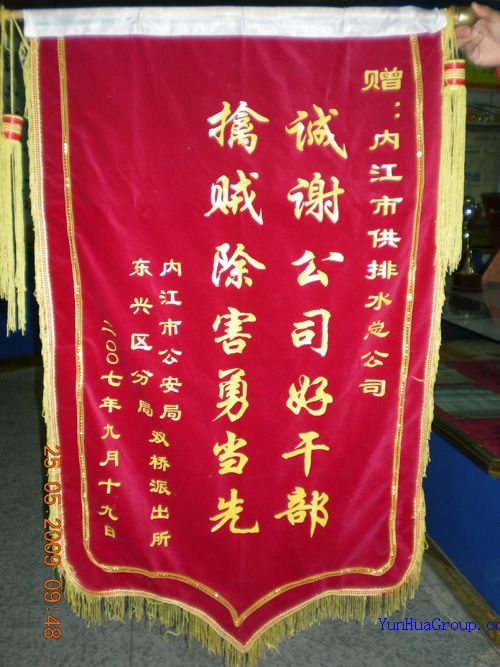 赠：内江市供排水总公司
诚谢公司好干部
擒贼除害勇当先
内江市公安局
东兴区分局 双桥派出所
二〇〇七年九月十九日
25 05 2009 09:48
YunHuaGroup.co